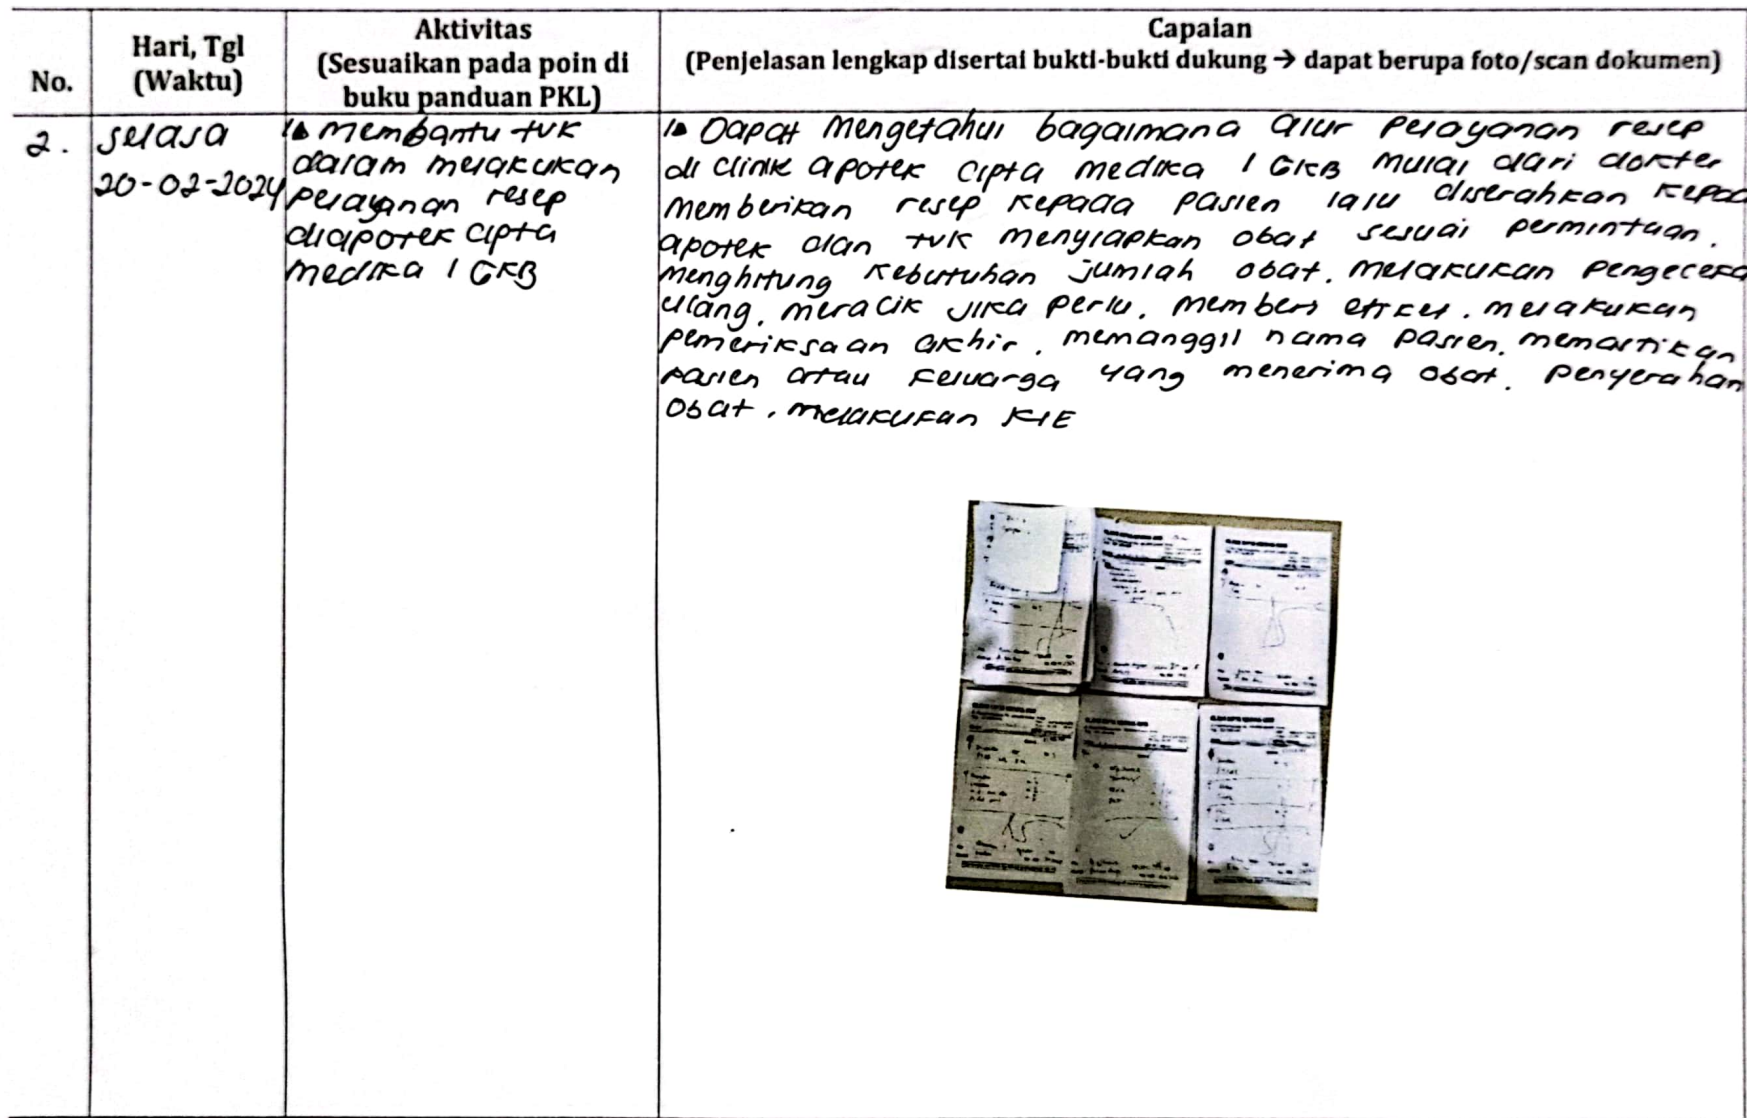 No.
Hari, Tgl
(Waktu)
Aktivitas
(Sesuaikan pada poin di
buku panduan PKL)
Capaian
(Penjelasan lengkap disertai bukti-bukti dukung → dapat berupa foto/scan dokumen)
2.
Selasa
20-02-2024
1. Membantu tvk
dalam melakukan
pelayanan resep
diapotek cipta
medika 1 GKB
1. Dapat mengetahui bagaimana alur pelayanan resep
di clinik apotek cipta medika 1 GKB mulai dari dokter
memberikan resep kepada pasien lalu diserahkan kepad
apotek dan tvk menyiapkan obat sesuai permintaan.
menghitung kebutuhan jumlah obat. melakukan pengeceka
ulang. meracik jika perlu. memberi etiket. melakukan
pemeriksaan akhir. memanggil nama pasien. memastikan
pasien atau keluarga yang menerima obat. penyerahan
obat. melakukan KIE